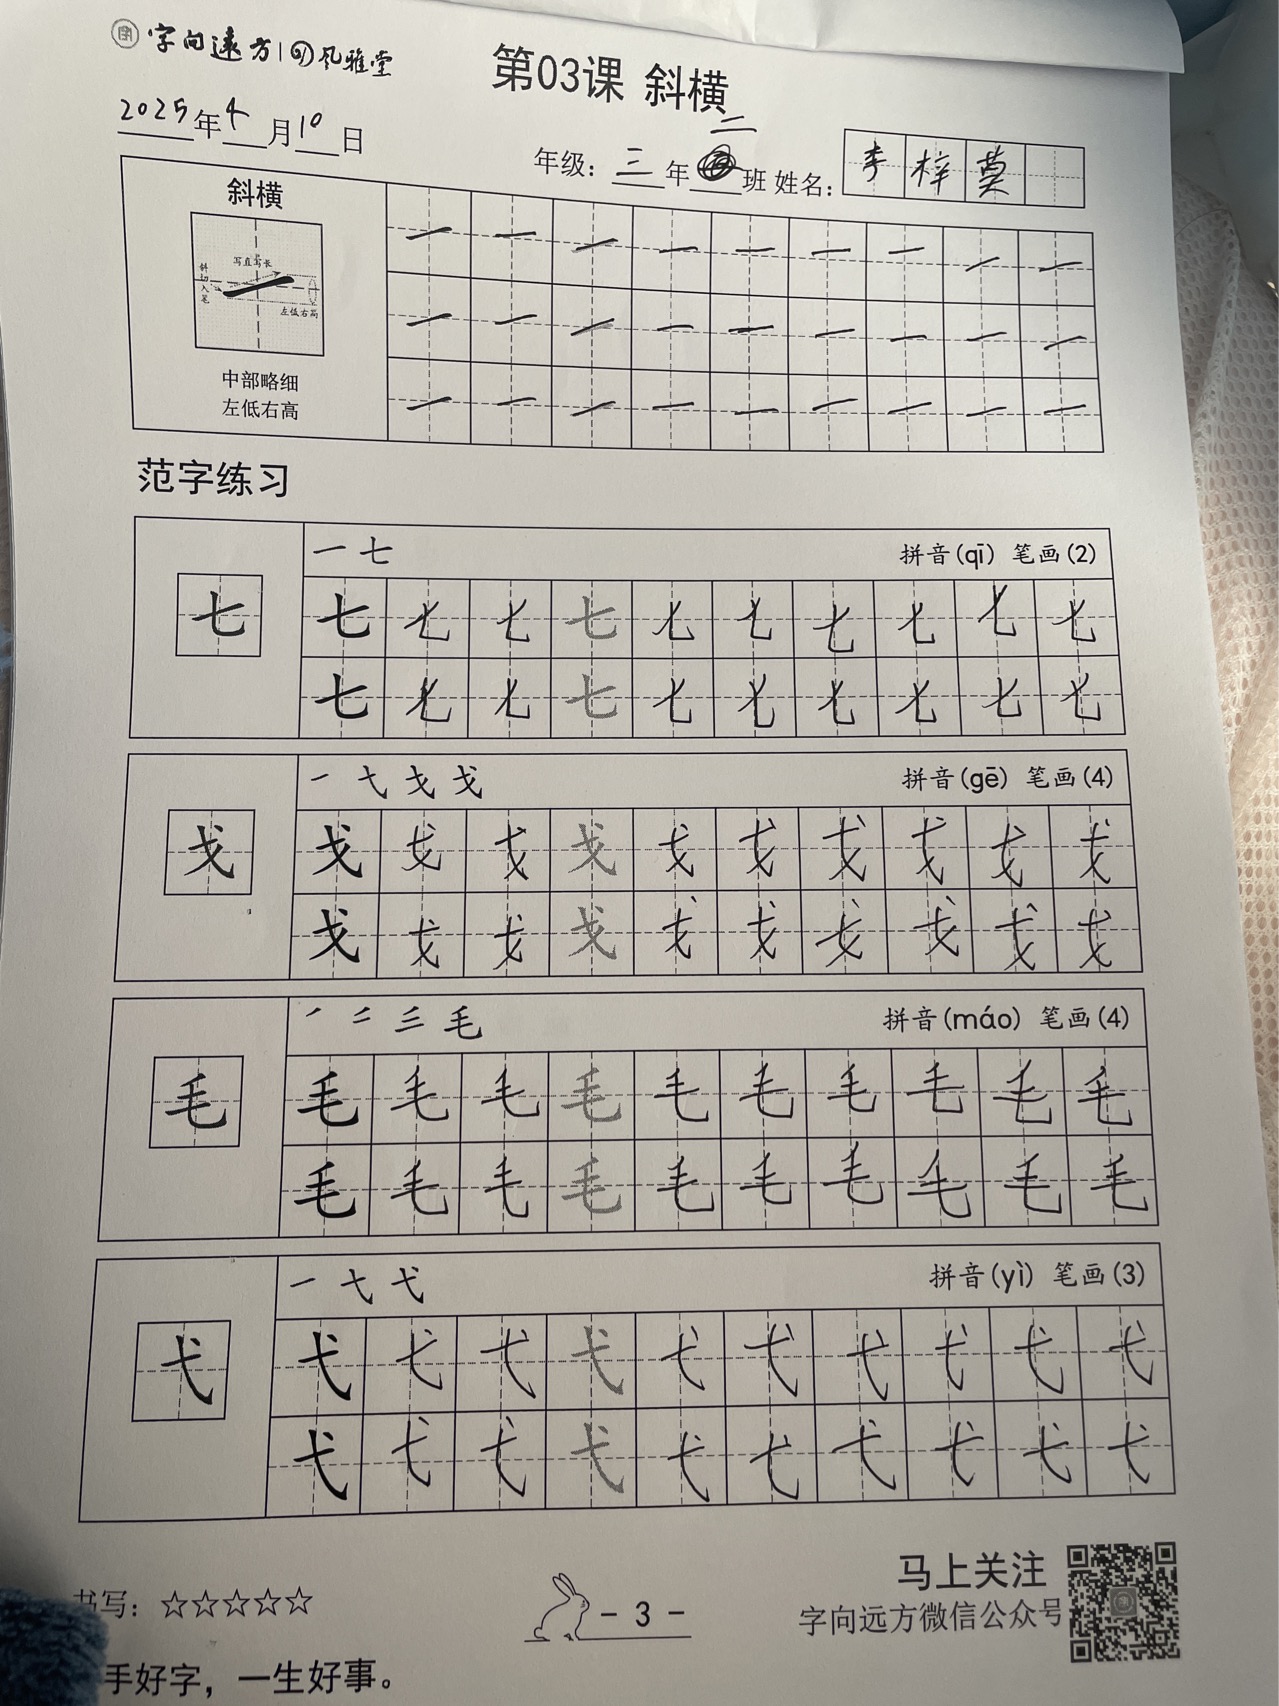 字向远方 | 风雅堂
第03课 斜横
2025年4月10日
年级：三年二班 姓名：李梓萸
斜横
写直写长
斜切入笔
左低右高
中部略细
左低右高
一 一 一 一 一 一 一 一 一
一 一 一 一 一 一 一 一 一
一 一 一 一 一 一 一 一 一
范字练习
一 七 拼音(qī) 笔画(2)
七
七 七 七 七 七 七 七 七 七 七
七 七 七 七 七 七 七 七 七 七
一 弋 戈 戈 拼音(gē) 笔画(4)
戈
戈 戈 戈 戈 戈 戈 戈 戈 戈 戈
戈 戈 戈 戈 戈 戈 戈 戈 戈 戈
毛 拼音(máo) 笔画(4)
毛
毛 毛 毛 毛 毛 毛 毛 毛 毛 毛
毛 毛 毛 毛 毛 毛 毛 毛 毛 毛
一 弋 拼音(yì) 笔画(3)
弋
弋 弋 弋 弋 弋 弋 弋 弋 弋 弋
弋 弋 弋 弋 弋 弋 弋 弋 弋 弋
书写：☆☆☆☆☆
- 3 -
马上关注
字向远方微信公众号
手好字，一生好事。